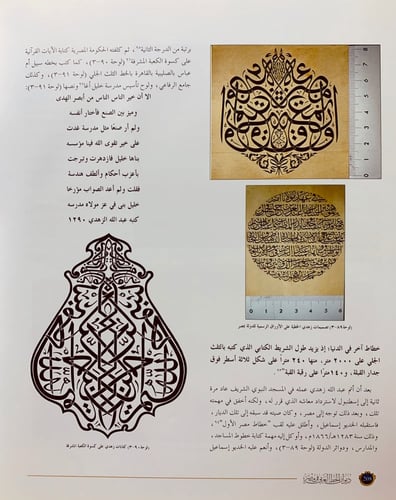 برتبة من الدرجة الثانية، ثم كلفته الحكومة المصرية كتابة الآيات القرآنية
على كسوة الكعبة المشرفة (لوحة ٩٠-٣)، كما كتب بخطه سبيل أم
عباس بالصليبية بالقاهرة بالخط الثلث الجلي (لوحة ٩١-٣)، وكذلك
جامع الرفاعي، ولوح تأسيس مدرسة خليل أغا ونصها (لوحة ٩١-٣):
ألا أن خير الناس الناس من أبصر الهدى
وميز بين الصنع فأختار أنفسه
ولم أر صنعًا مثل مدرسة غدت
على خير تقوى الله فينا مؤسسه
بناها خليل فازدهرت وتبرجت
بأعرب أحكام وألطف هندسة
فقلت ولم أعد الصواب مؤرخا
خليل بنى في عز مولاه مدرسه
كتبه عبد الله الزهدي ١٢٩٠
0 1 2 3 4 5 6 7 8
0 1 2 3 4 5 6
(لوحة ٨٩-٣): تصميمات زهدي الخطية على الأوراق الرسمية للدولة بمصر
خطاط آخر في الدنيا؛ إذ يزيد طول الشريط الكتابي الذي كتبه بالثلث
الجلي على ٢٠٠٠ متر، منها ٢٤٠ متراً على شكل ثلاثة أسطر فوق
جدار القبلة، و١٤٠ متراً على رقبة القبة
بعد أن أتم عبد الله زهدي عمله في المسجد النبوي الشريف عاد مرة
ثانية إلى إسطنبول لاسترداد معاشه الذي قرر له، ولكنه أخفق في مهمته
تلك، وبعد ذلك توجه إلى مصر، وكان صيته قد سبقه إلى تلك الديار،
فاستقبله الخديو إسماعيل، وأطلق عليه لقب "خطاط مصر الأول"،
وذلك سنة ١٢٨٣هـ/١٨٦٦م، وأوكل إليه مهمة كتابة خطوط المساجد،
والمدارس، ودوائر الدولة (لوحة ٨٩-٣)، وأنعم عليه الخديو إسماعيل
(لوحة ٩٠-٣): كتابات زهدي على كسوة الكعبة المشرفة